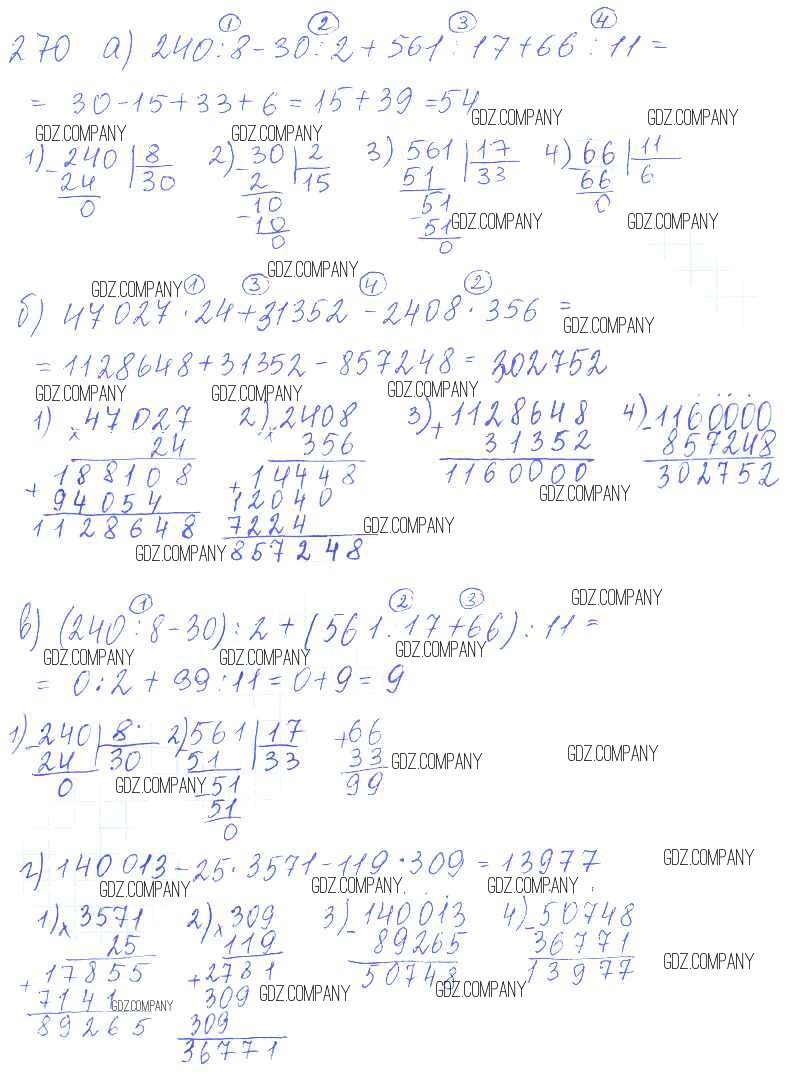 270 а) 240:8-30:2+561:17+66:11=
① ② ③ ④
= 30-15+33+6=15+39=54
GDZ.COMPANY GDZ.COMPANY GDZ.COMPANY GDZ.COMPANY
1) 240 | 8 2) 30 | 2 3) 561 | 17 4) 66 | 11
- 24 30 - 2 15 51 33 - 66 6
0 10 51 0
- 10 - 51 GDZ.COMPANY GDZ.COMPANY
0 0
GDZ.COMPANY
GDZ.COMPANY ① ③ ④ ②
б) 47027·24+31352-2408·356=
GDZ.COMPANY
= 1128648+31352-857248=302752
GDZ.COMPANY GDZ.COMPANY GDZ.COMPANY
1) 47027 2) 2408 3) 1128648 4) 1160000
x 24 x 356 + 31352 - 857248
188108 14448 1160000 302752
+ 94054 + 12040 GDZ.COMPANY
1128648 7224 GDZ.COMPANY
GDZ.COMPANY 857248
① ② ③ GDZ.COMPANY
в) (240:8-30):2+(561:17+66):11=
GDZ.COMPANY GDZ.COMPANY GDZ.COMPANY
= 0:2+39:11=0+9=9
1) 240 | 8 2) 561 | 17 + 66
- 24 30 51 33 33 GDZ.COMPANY GDZ.COMPANY
0 GDZ.COMPANY 51 99
51
0
г) 140013-25·3571-119·309=13977 GDZ.COMPANY
GDZ.COMPANY GDZ.COMPANY GDZ.COMPANY
1) x 3571 2) x 309 3) - 140013 4) - 50748
25 119 89265 36771
+ 17855 + 2781 50748 13977 GDZ.COMPANY
7141 GDZ.COMPANY 309 GDZ.COMPANY GDZ.COMPANY
89265 309
36771